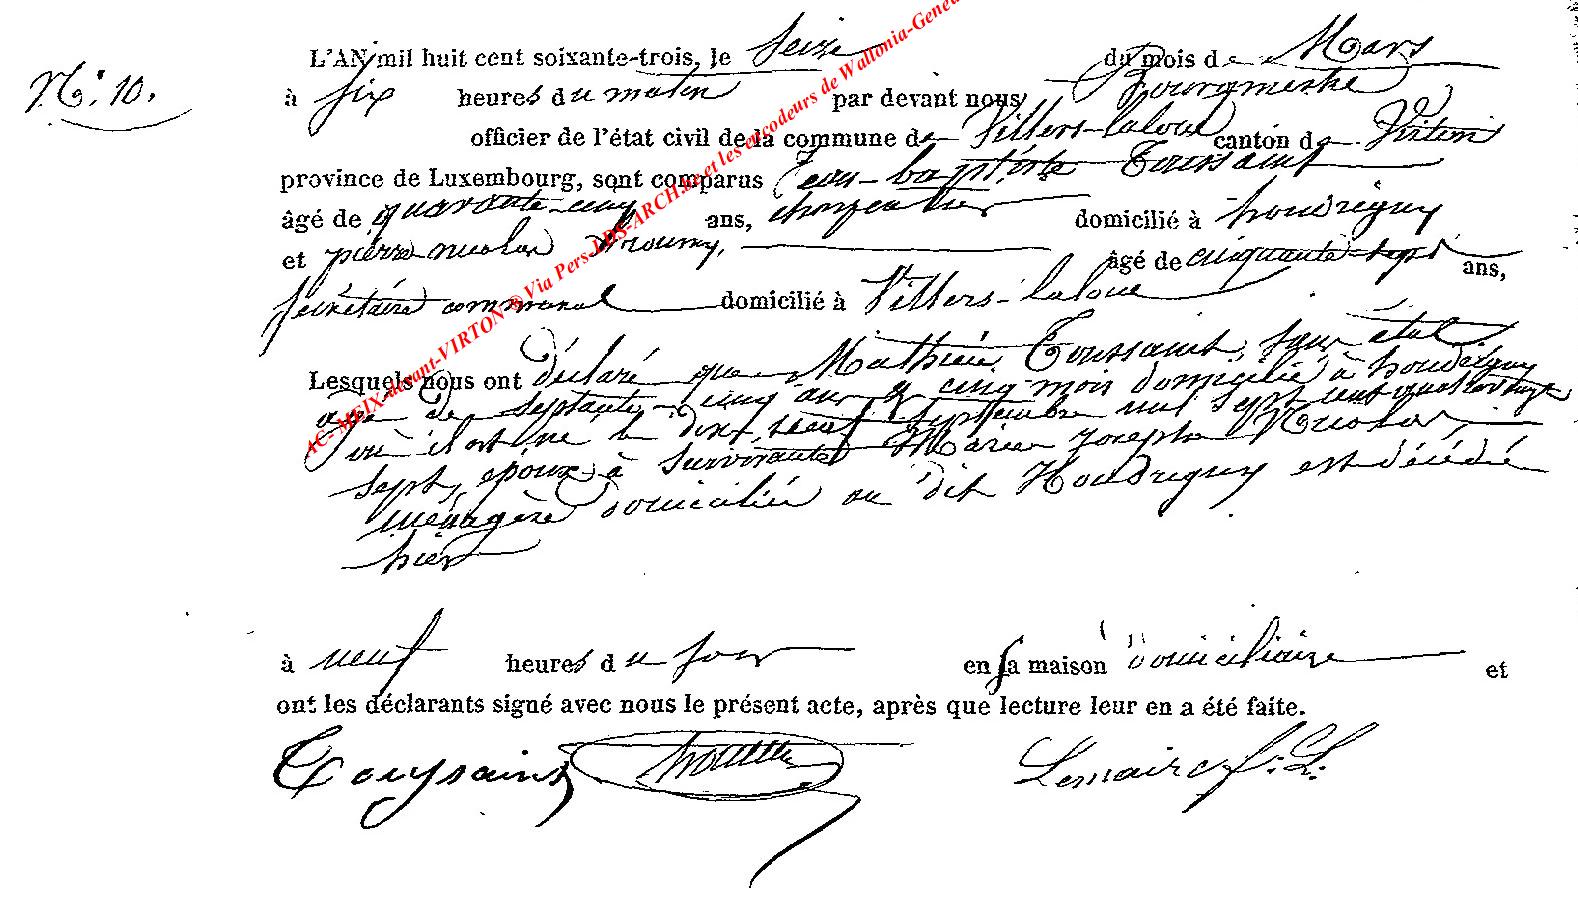 L'AN mil huit cent soixante-trois, le Seize du mois de Mars
N.° 10.
à six heures du matin par devant nous Bourgmestre
officier de l'état civil de la commune de Villers-laloue canton de Virton
province de Luxembourg, sont comparus Jean-baptiste Toussaint
âgé de quarante-cinq ans, charpentier domicilié à houdrigny
et pierre nicolas âgé de cinquante-sept ans,
secrétaire communal domicilié à Villers-laloue
Lesquels nous ont déclaré que Mathieu Toussaint, sans état
agé de septante-cinq ans & cinq mois domicilié à houdrigny
où il est né le dix septembre mil sept cent quatre vingt
sept, époux à survivante Marie Joseph Nicolas,
ménagère domiciliée au dit Houdrigny est décédé
hier
à neuf heures du soir en sa maison domiciliaire et
ont les déclarants signé avec nous le présent acte, après que lecture leur en a été faite.
Toussaint Lemaire f. L.
AC- MEIX-devant-VIRTON ® Via Pers-LDS-ARCH.be et les encodeurs de Wallonia-Genea